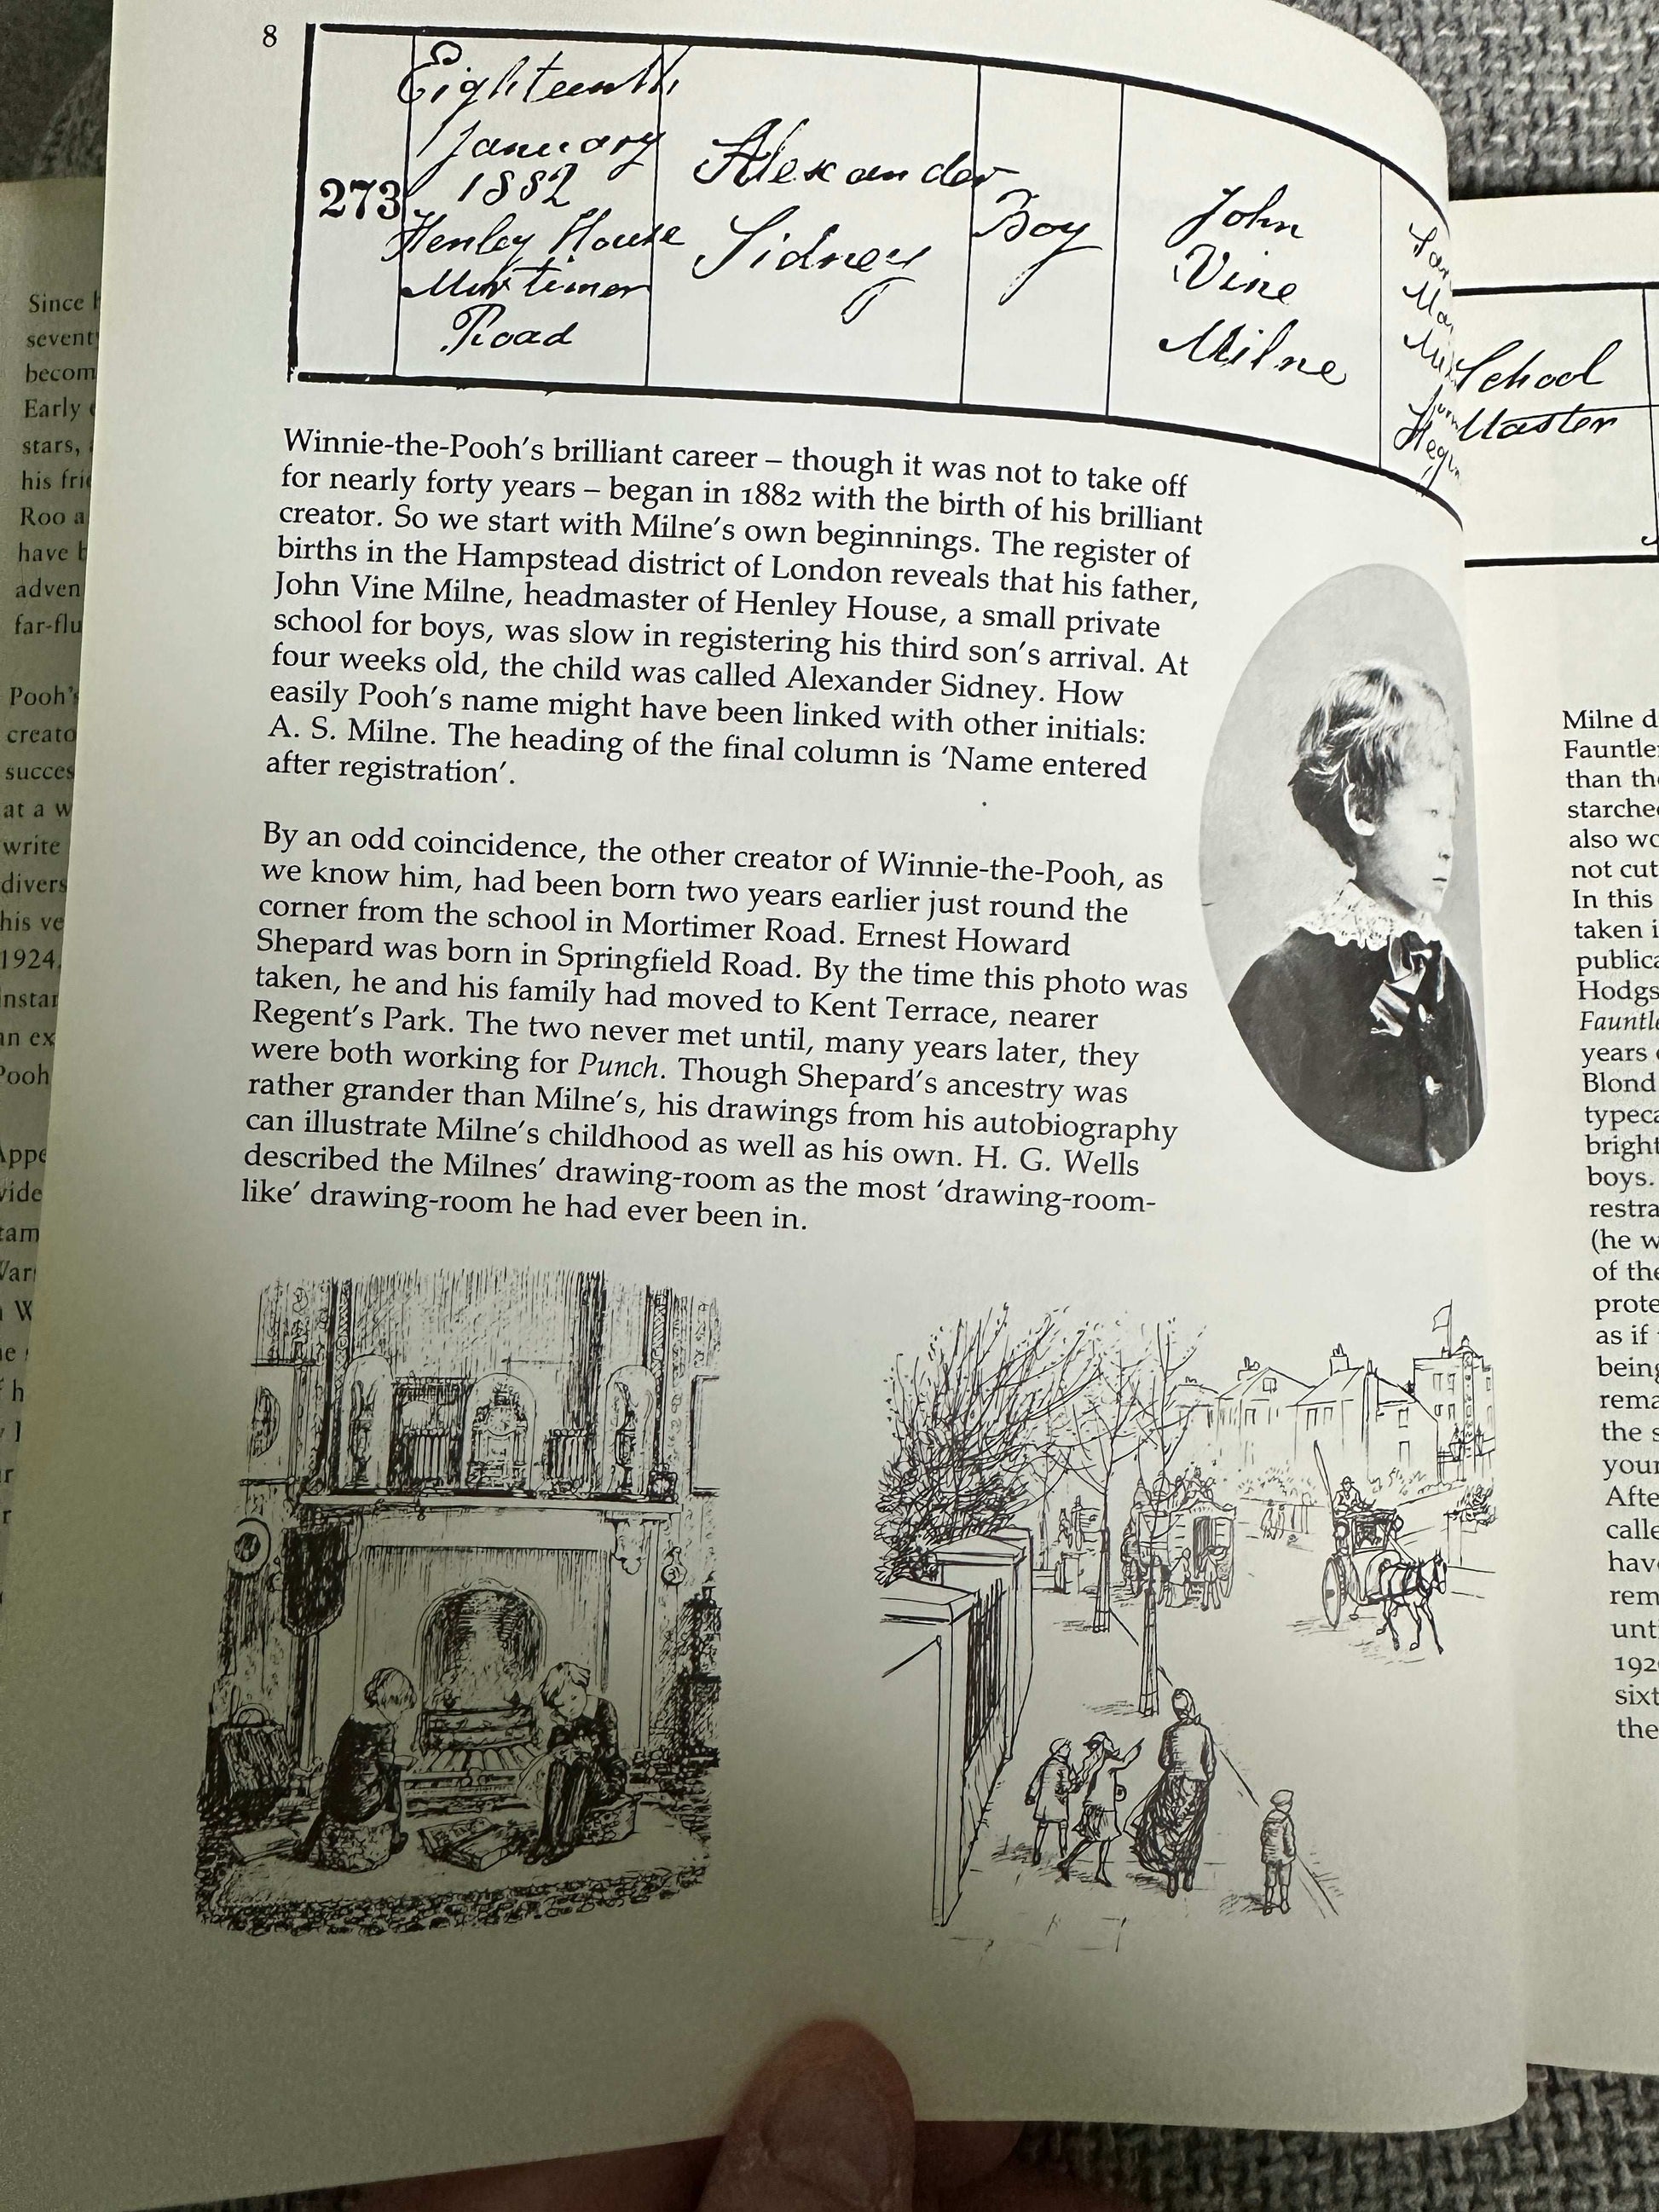 8
273
Eighteenth
January
1882
Henley House
Mortimer
Road
Alexander
Sidney
Boy
John
Vine
Milne
School
Master
Winnie-the-Pooh's brilliant career – though it was not to take off
for nearly forty years – began in 1882 with the birth of his brilliant
creator. So we start with Milne's own beginnings. The register of
births in the Hampstead district of London reveals that his father,
John Vine Milne, headmaster of Henley House, a small private
school for boys, was slow in registering his third son's arrival. At
four weeks old, the child was called Alexander Sidney. How
easily Pooh's name might have been linked with other initials:
A. S. Milne. The heading of the final column is 'Name entered
after registration'.
By an odd coincidence, the other creator of Winnie-the-Pooh, as
we know him, had been born two years earlier just round the
corner from the school in Mortimer Road. Ernest Howard
Shepard was born in Springfield Road. By the time this photo was
taken, he and his family had moved to Kent Terrace, nearer
Regent's Park. The two never met until, many years later, they
were both working for Punch. Though Shepard's ancestry was
rather grander than Milne's, his drawings from his autobiography
can illustrate Milne's childhood as well as his own. H. G. Wells
described the Milnes' drawing-room as the most 'drawing-room-
like' drawing-room he had ever been in.
Since
seventy
becom
Early
stars,
his frie
Roo a
have b
adven
far-flu
Pooh's
creato
succes
at a w
write
divers
his ve
1924.
instar
an ex
Pooh
Appe
vide
Milne d
Fauntler
than the
starched
also wo
not cut
In this
taken i
publica
Hodgs
Fauntle
years
Blond
typeca
bright
boys.
restra
(he w
of the
prote
as if
being
rema
the s
your
Afte
calle
have
rem
unti
192
sixt
the